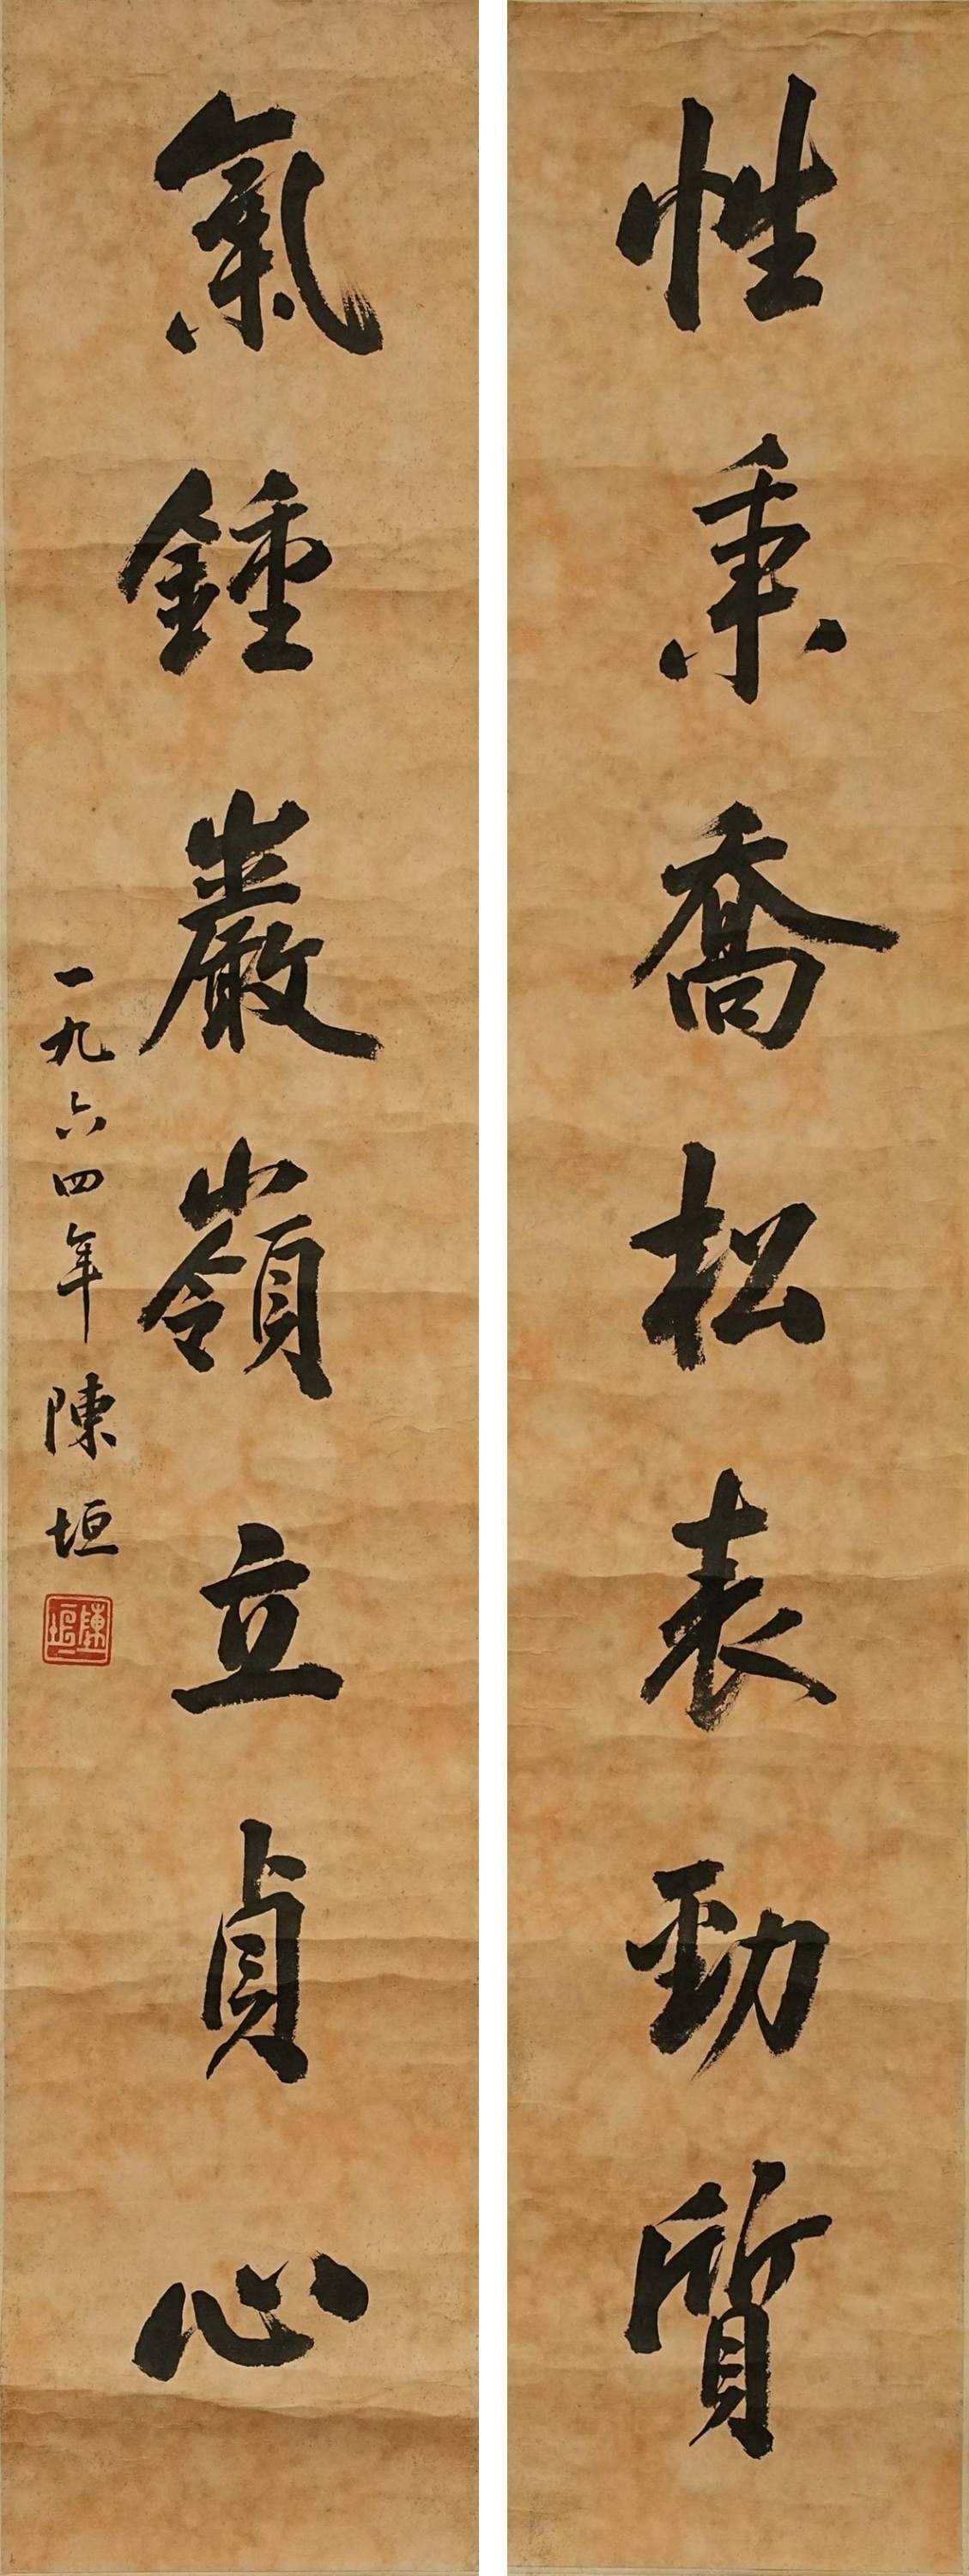 性秉喬松表勁質
氣鍾巖嶺立貞心
一九六四年 陳垣
陳垣